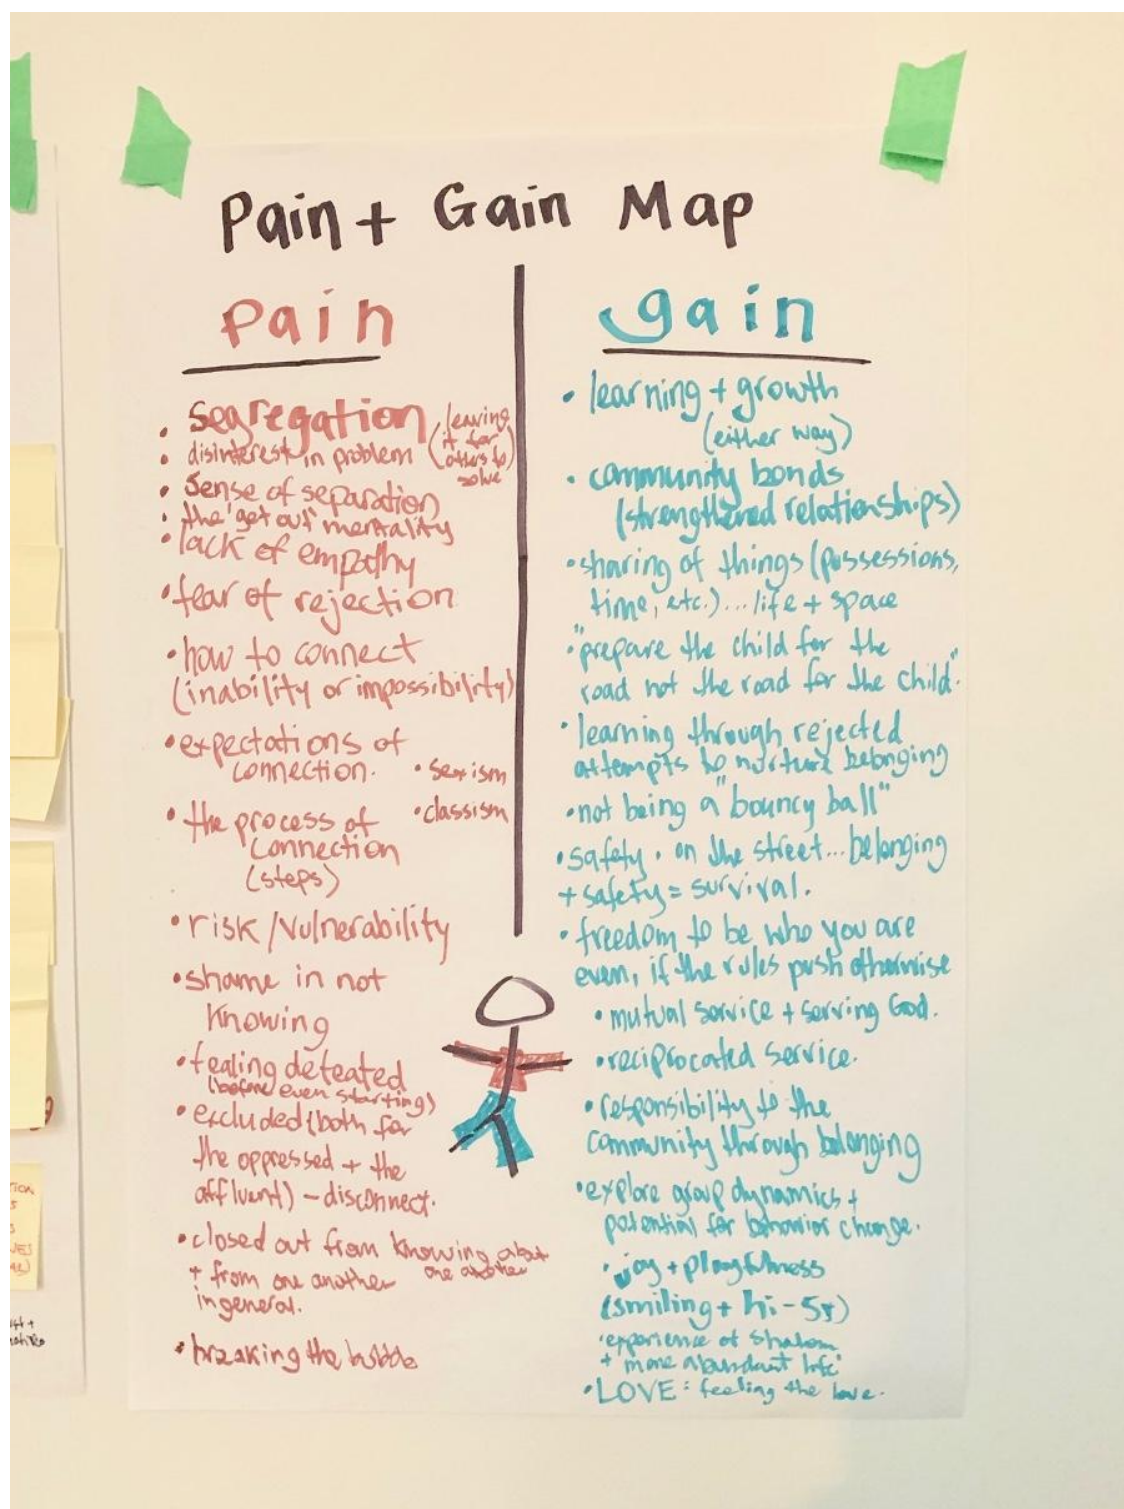 Pain + Gain Map
pain
• segregation
• disinterest in problem (leaving
it for
others to
solve)
• sense of separation
• the 'get out' mentality
• lack of empathy
• fear of rejection
• how to connect
(inability or impossibility)
• expectations of
connection.
• sexism
• the process of
connection
(steps)
• classism
• risk/vulnerability
• shame in not
knowing
• feeling defeated
(before even starting)
• excluded (both for
the oppressed + the
affluent) – disconnect.
• closed out from knowing about
one another
+ from one another
in general.
• breaking the bubble
gain
• learning + growth
(either way)
• community bonds
(strengthened relationships)
• sharing of things (possessions,
time, etc.)... life + space
• "prepare the child for the
road not the road for the child."
• learning through rejected
attempts to nurture belonging
• not being a "bouncy ball"
• safety. on the street... belonging
+ safety = survival.
• freedom to be who you are
even, if the rules push otherwise
• mutual service + serving God.
• reciprocated service.
• responsibility to the
community through belonging
• explore group dynamics +
potential for behavior change.
• joy + playfulness
(smiling + hi-5s)
• experience of shalom
+ "more abundant life"
• LOVE: feeling the love.